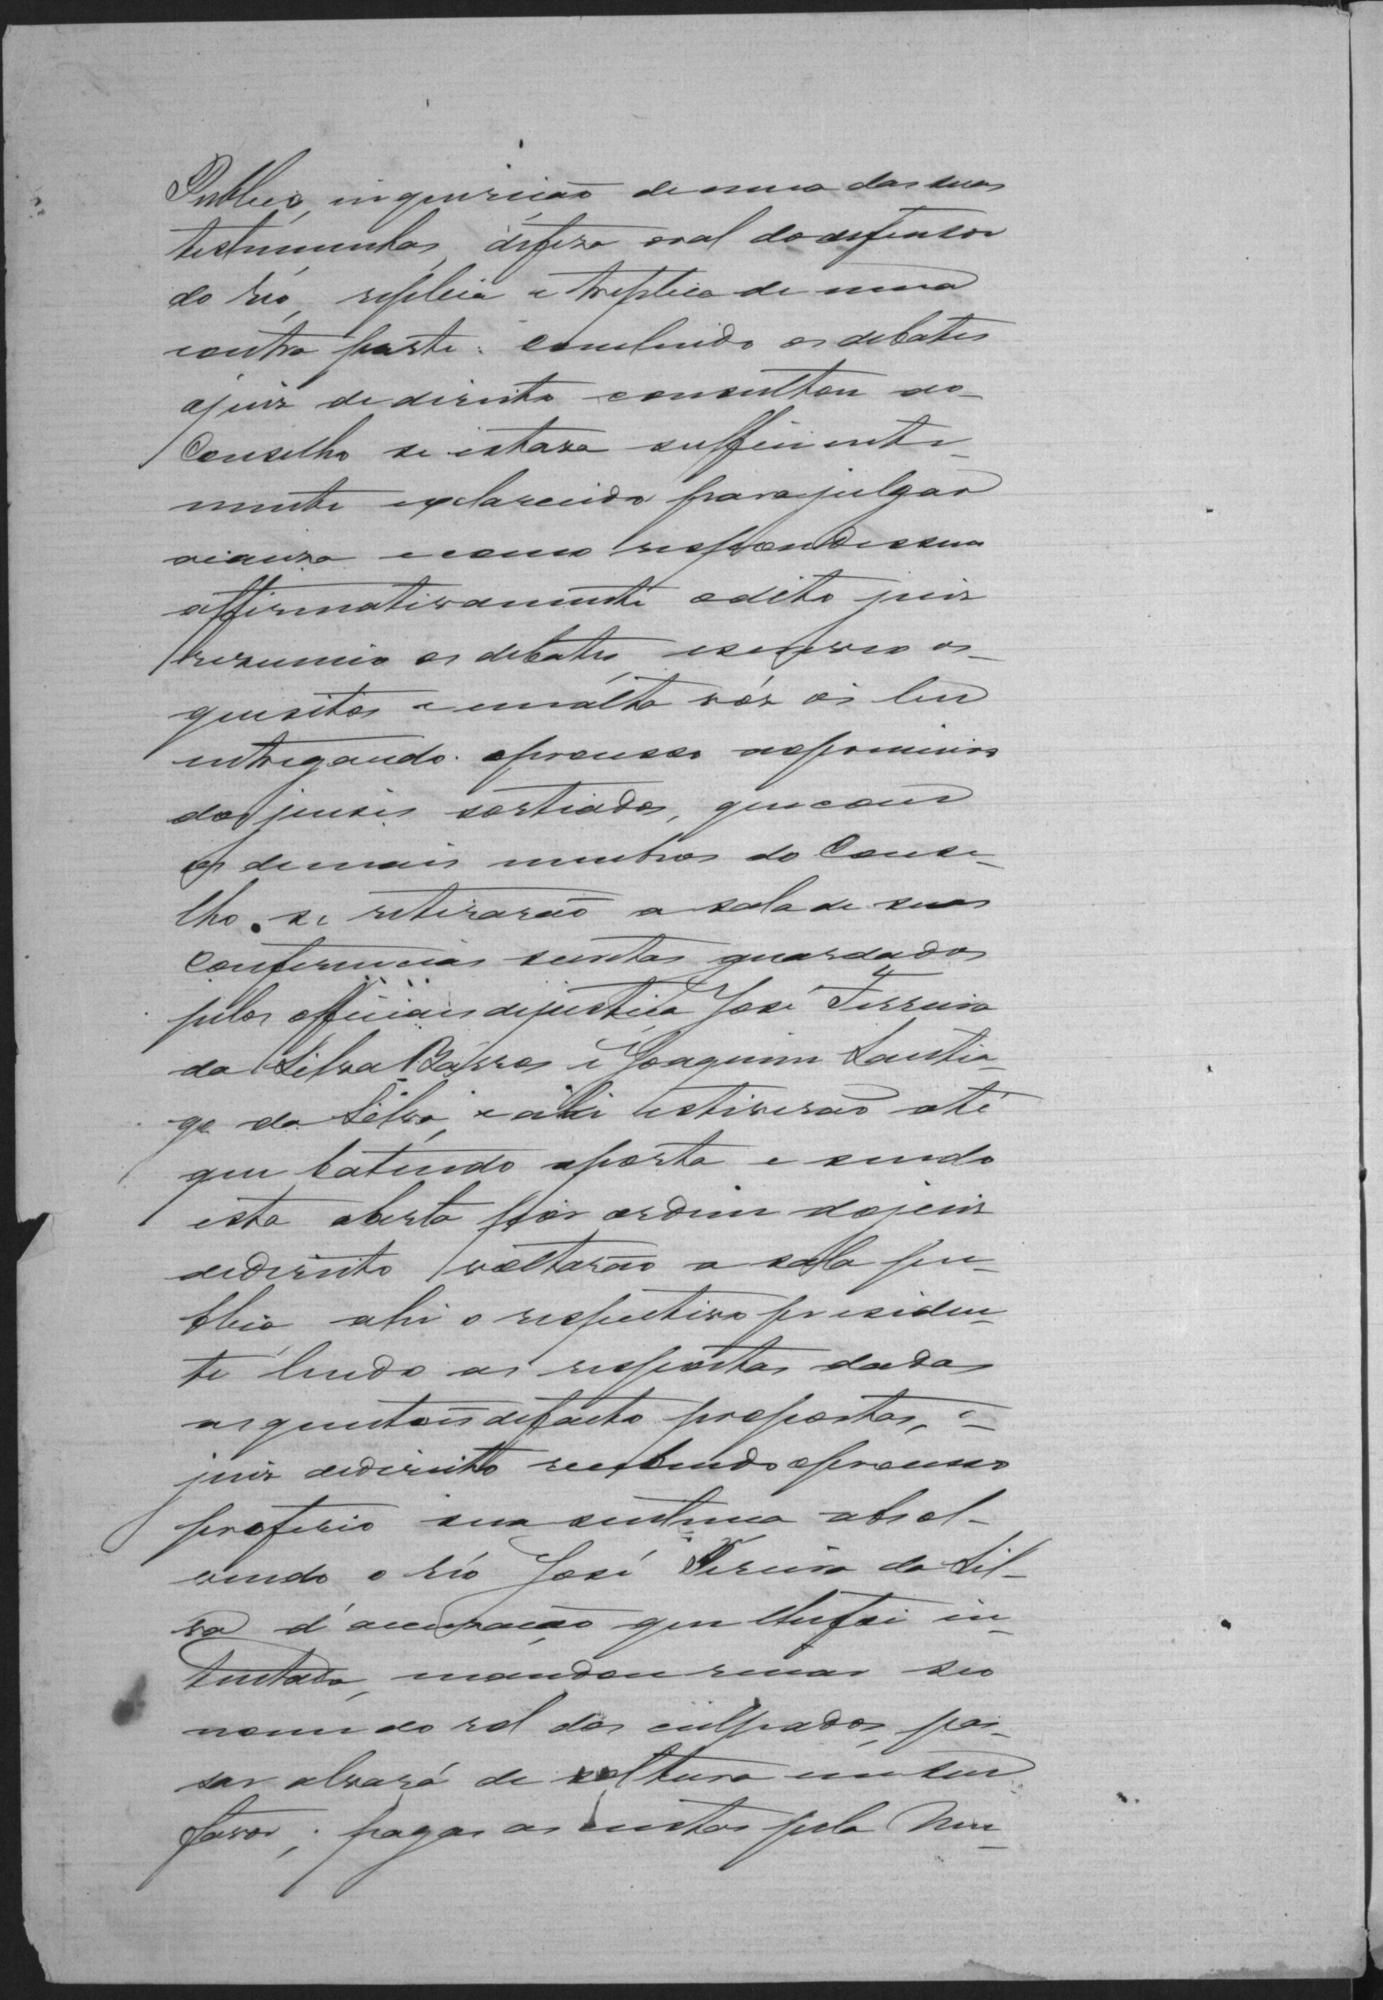 Publico, inquirição de uma das suas
testemunhas, defeza oral do defensor
do réo, replica e treplica de uma
e outra parte. Concluido os debates
o juiz de direito consultou ao
Conselho se estava sufficiente-
mente esclarecido para julgar
a causa e como respondessem
affirmativamente o dito juiz
resumio os debates, escreveo os
quisitos e em alta vóz os leu
entregando o processo ao primeiro
dos juises sorteados, que com
os demais membros do Conse-
lho se retirarão a sala de suas
Conferencias sendo guardados
pelos officiaes de justiça José Ferreira
da Silva Barros e Joaquim Santia-
go da Silva, e ahi estiverão até
que batendo a porta e sendo
esta aberta por ordem do juiz
de direito voltarão a sala pu-
blica ahi o respectivo presiden-
te lendo as respostas dadas
as questões de facto propostas, o
juiz de direito recebendo o processo
proferio sua sentença absol-
vendo o réo José Pereira da Sil-
va d'accusação que lhe foi in-
tentada, mandou riscar seo
nome do rol dos culpados, pas-
sar alvará de soltura em seu
favor, pagas as custas pela Mu-